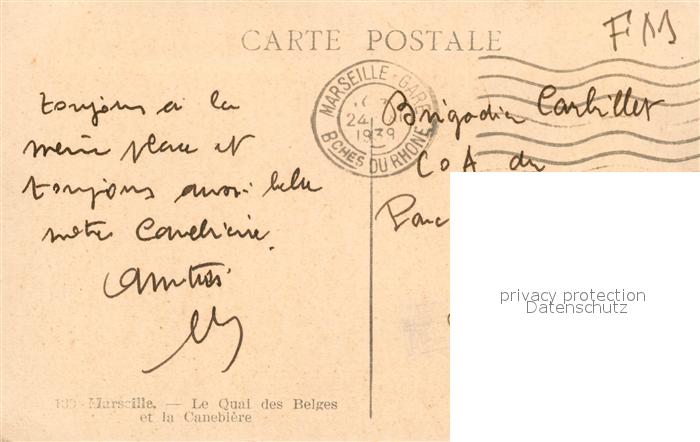 CARTE POSTALE
FM
MARSEILLE-GARE
24
1939
BCHES DU RHONE
toujours à la
même place et
toujours aussi belle
notre Canebière.
Amitiés
Brigadier Carbillet
COA du
Parc
privacy protection
Datenschutz
133 - Marseille. — Le Quai des Belges
et la Canebière